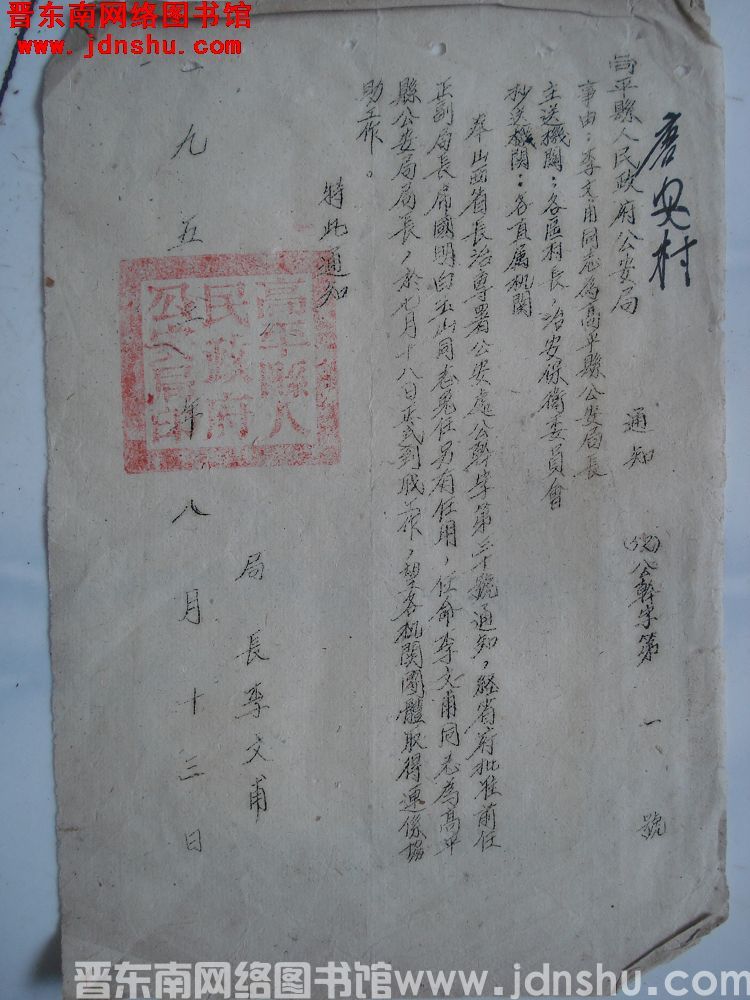 晋东南网络图书馆
www.jdnshu.com
唐安村
高平縣人民政府公安局 通知 公幹字第一號
事由：李文甫同志為高平縣公安局長
主送機關：各區村長，治安保衛委員會
抄送機関：各直属机関
奉山西省長治專署公安處公幹字第三十號通知，経省府批准前任
正副局長席國明白玉山同志免任另有任用，任命李文甫同志為高平
縣公安局局長，於七月十八日正式到职工作，望各机関團體取得連係協
助工作。
特此通知
局長李文甫
一九五三年八月十三日
高平縣人
民政府
公安局印
晋东南网络图书馆www.jdnshu.com